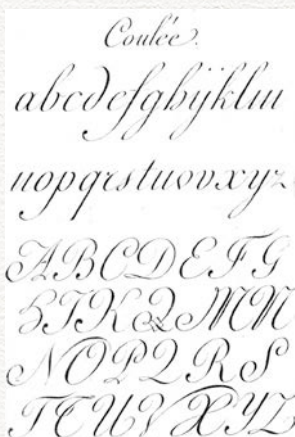 Coulée.
abcdefghijklm
nopqrstuvxyz
ABCDEFG
HIKLMN
NOPQRS
TTUVXYZ